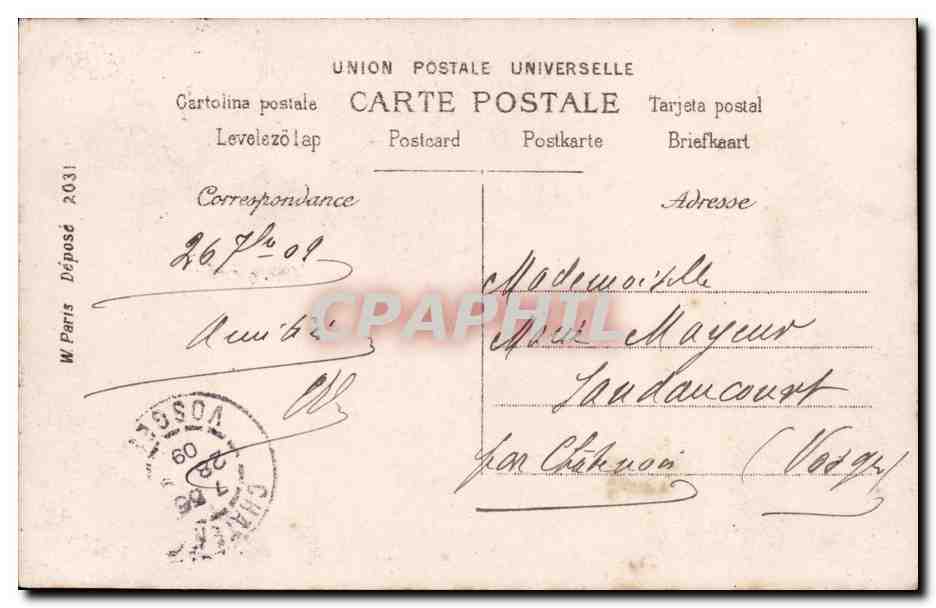 UNION POSTALE UNIVERSELLE
Cartolina postale CARTE POSTALE Tarjeta postal
Levelezőlap Postcard Postkarte Briefkaart
W. Paris Déposé 2031
Correspondance
26 7bre 09
Amitiés
Adresse
Mademoiselle
Marie Mayeur
Landaucourt
par Châtenois (Vosges)
VOSGES
09
28
CHA
CPAPHIL